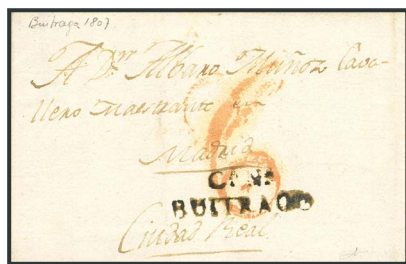 Buitrago 1807
A Dn Albaro Muñoz Cava-
llero Maestrante en
Madrid
6
CANA
BUITRAGO
Ciudad Real